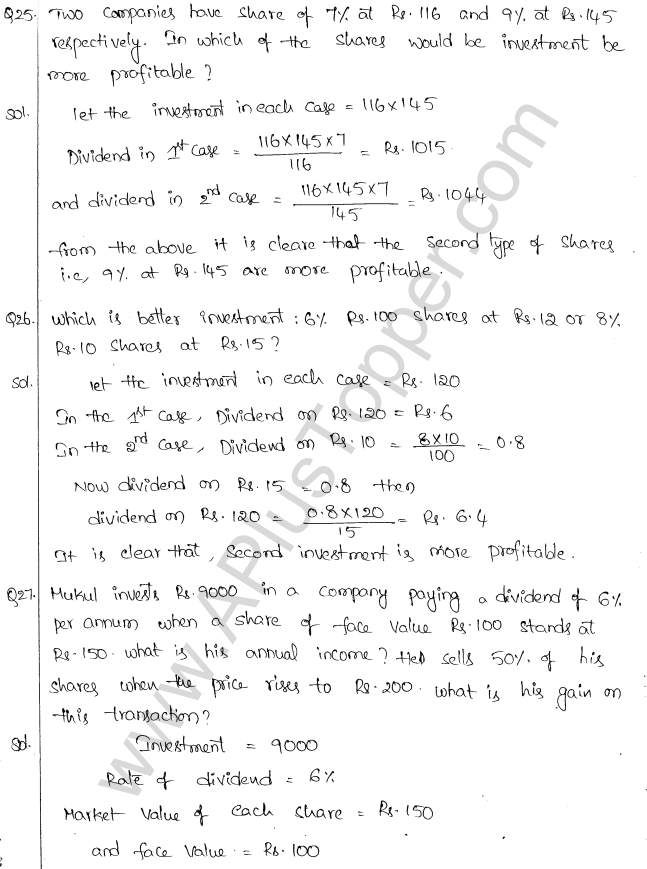 Q25. Two companies have share of 7% at Rs.116 and 9% at Rs.145
respectively. In which of the shares would be investment be
more profitable?
sol. let the investment in each case = 116×145
Dividend in 1st case = 116×145×7 / 116 = Rs.1015
and dividend in 2nd case = 116×145×7 / 145 = Rs.1044
from the above it is cleare that the second type of shares
i.e, 9% at Rs.145 are more profitable.
Q26. which is better investment : 6% Rs.100 shares at Rs.12 or 8%
Rs.10 shares at Rs.15?
sol. let the investment in each case = Rs. 120
In the 1st case, Dividend on Rs.120 = Rs.6
In the 2nd case, Dividend on Rs.10 = 8×10 / 100 = 0.8
Now dividend on Rs.15 = 0.8 then
dividend on Rs.120 = 0.8×120 / 15 = Rs. 6.4
It is clear that, second investment is more profitable.
Q27. Mukul invests Rs.9000 in a company paying a dividend of 6%
per annum when a share of face value Rs.100 stands at
Rs.150. what is his annual income? sells 50% of his
shares when the price rises to Rs.200. what is his gain on
this transaction?
sol. Investment = 9000
Rate of dividend = 6%
Market value of each share = Rs.150
and face value = Rs.100
www.APlusTopper.com